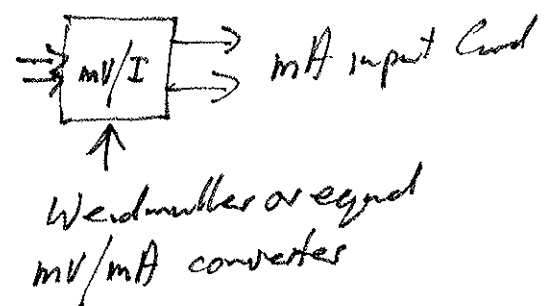 mV/I
mA input Card
Weidmuller or equal
mV/mA converter